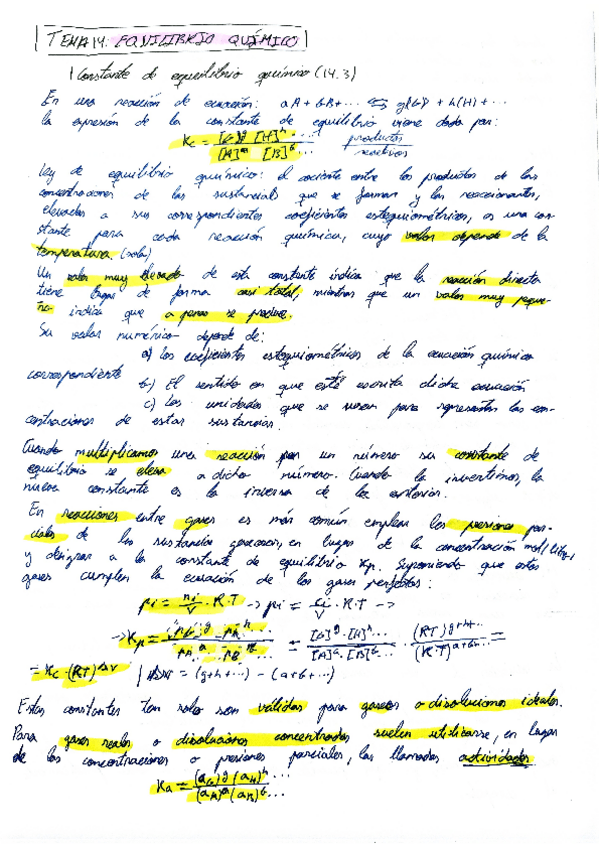 TEMA 14: EQUILIBRIO QUÍMICO
Constante de equilibrio químico (14.3)
En una reacción de ecuación: aA + bB + ... ⇆ g(G) + h(H) + ...
la expresión de la constante de equilibrio viene dada por:
Kc = [G]^g [H]^h ... / [A]^a [B]^b ... productos / reactivos
Ley de equilibrio químico: el cociente entre los productos de las
concentraciones de las sustancias que se forman y las reaccionantes,
elevadas a sus correspondientes coeficientes estequiométricos, es una con-
stante para cada reacción química, cuyo valor depende de la
temperatura. (solo)
Un valor muy elevado de esta constante indica que la reacción directa
tiene lugar de forma casi total, mientras que un valor muy peque-
ño indica que apenas se produce.
Su valor numérico depende de:
a) los coeficientes estequiométricos de la ecuación química
correspondiente
b) El sentido en que esté escrita dicha ecuación
c) Las unidades que se usen para representar las con-
centraciones de estas sustancias.
Cuando multiplicamos una reacción por un número su constante de
equilibrio se eleva a dicho número. Cuando la invertimos, la
nueva constante es la inversa de la anterior.
En reacciones entre gases es más común emplear las presiones par-
ciales de las sustancias gaseosas, en lugar de la concentración mol/litro
y designar a la constante de equilibrio Kp. Suponiendo que estos
gases cumplen la ecuación de los gases perfectos:
pi = ni/V · R·T -> pi = ci · R·T ->
-> Kp = pG^g · pH^h ... / pA^a · pB^b ... = [G]^g · [H]^h ... / [A]^a · [B]^b ... · (RT)^g+h+... / (RT)^a+b+... =
= Kc · (RT)^Δν | Δν = (g+h+...) - (a+b+...)
Estas constantes tan solo son válidas para gaseosos o disoluciones ideales.
Para gases reales o disoluciones concentradas suelen utilizarse, en lugar
de las concentraciones o presiones parciales, las llamadas actividades
Ka = (aG)^g (aH)^h ... / (aA)^a (aB)^b ...